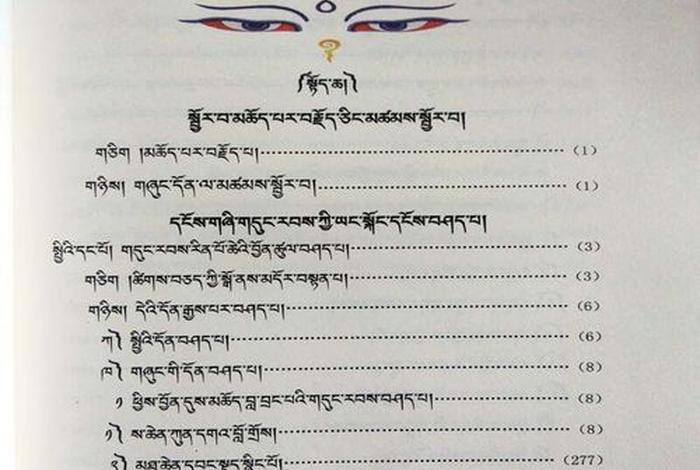 ༼སྟོད་ཆ།༽
སྦྱོར་བ་མཆོད་པར་བརྗོད་ཅིང་མཚམས་སྦྱོར་བ།
གཅིག །མཆོད་པར་བརྗོད་པ།………………………………（1）
གཉིས། གཞུང་དོན་ལ་མཚམས་སྦྱོར་བ།………………………………（1）
དངོས་གཞི་གདུང་རབས་ཀྱི་ཡང་སྐོང་དངོས་བཤད་པ།
སྤྱིའི་དང་པོ། གདུང་རབས་རིན་པོ་ཆེའི་བྱོན་ཚུལ་བཤད་པ།………………………………（3）
གཅིག །ཚིགས་བཅད་ཀྱི་སྒོ་ནས་མདོར་བསྟན་པ།………………………………（3）
གཉིས། དེའི་དོན་རྒྱས་པར་བཤད་པ།………………………………（6）
ཀ༽ སྤྱིའི་དོན་བཤད་པ།………………………………（6）
ཁ༽ གཞུང་གི་དོན་བཤད་པ།………………………………（8）
༡ ཕྱིས་བྱོན་དུས་མཆོད་བླ་བྲང་པའི་གདུང་རབས་བཤད་པ།………………………………（8）
༡༽ ས་ཆེན་ཀུན་དགའ་བློ་གྲོས།………………………………（8）
༢༽ མཐུ་ཆེན་དབང་སྡུད་སྙིང་པོ།………………………………（277）